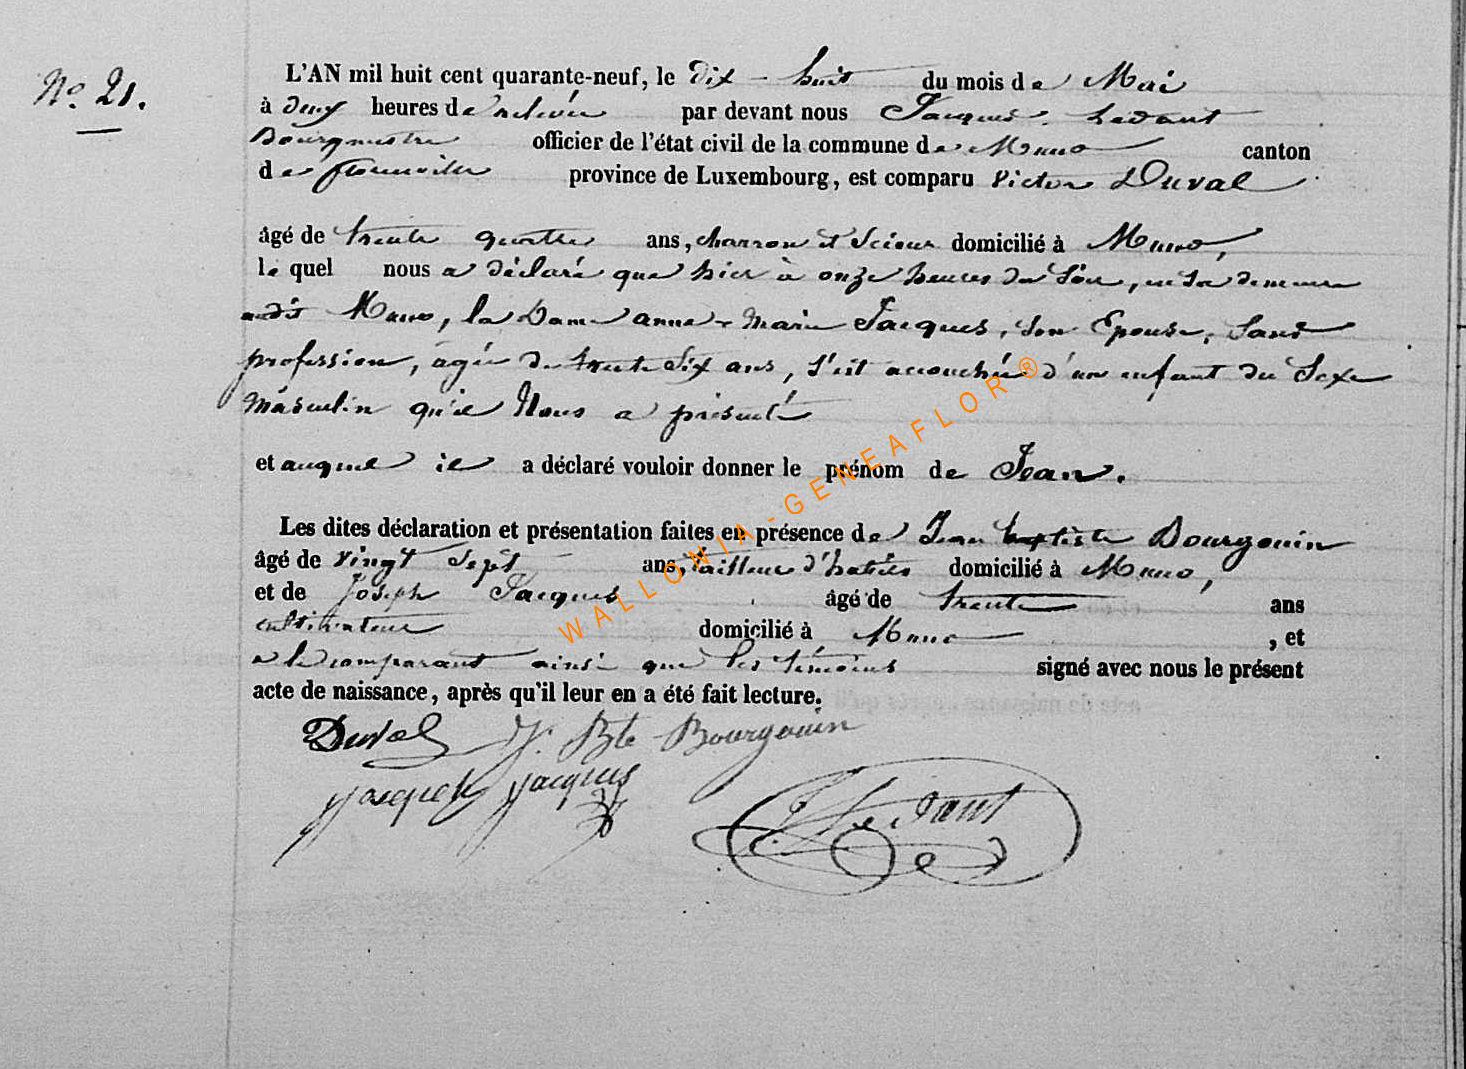 N° 21.
L'AN mil huit cent quarante-neuf, le Dix-huit du mois de Mai
à deux heures de relevée par devant nous Jacques Ledant
Bourgmestre officier de l'état civil de la commune de Muno canton
de florenville province de Luxembourg, est comparu Victor Duval
âgé de trente quatre ans, charron et Scieur domicilié à Muno,
le quel nous a déclaré que hier à onze heures du Soir, en sa demeure
audit Muno, la Dame anne-Marie Jacques, Son Epouse, Sans
profession, agée de trente Six ans, s'est accouchée d'un enfant du Sexe
Masculin qu'il Nous a présenté
et auquel il a déclaré vouloir donner le prénom de Jean.
Les dites déclaration et présentation faites en présence de Jean baptiste Bourgouin
âgé de vingt Sept ans, tailleur d'habits domicilié à Muno,
et de Joseph Jacques âgé de trente ans
cultivateur domicilié à Muno, et
a le comparant ainsi que les témoins signé avec nous le présent
acte de naissance, après qu'il leur en a été fait lecture.
Duval J. Bte Bourgouin
Joseph Jacques
J Ledant
WALLONIA-GENEAFLOR®